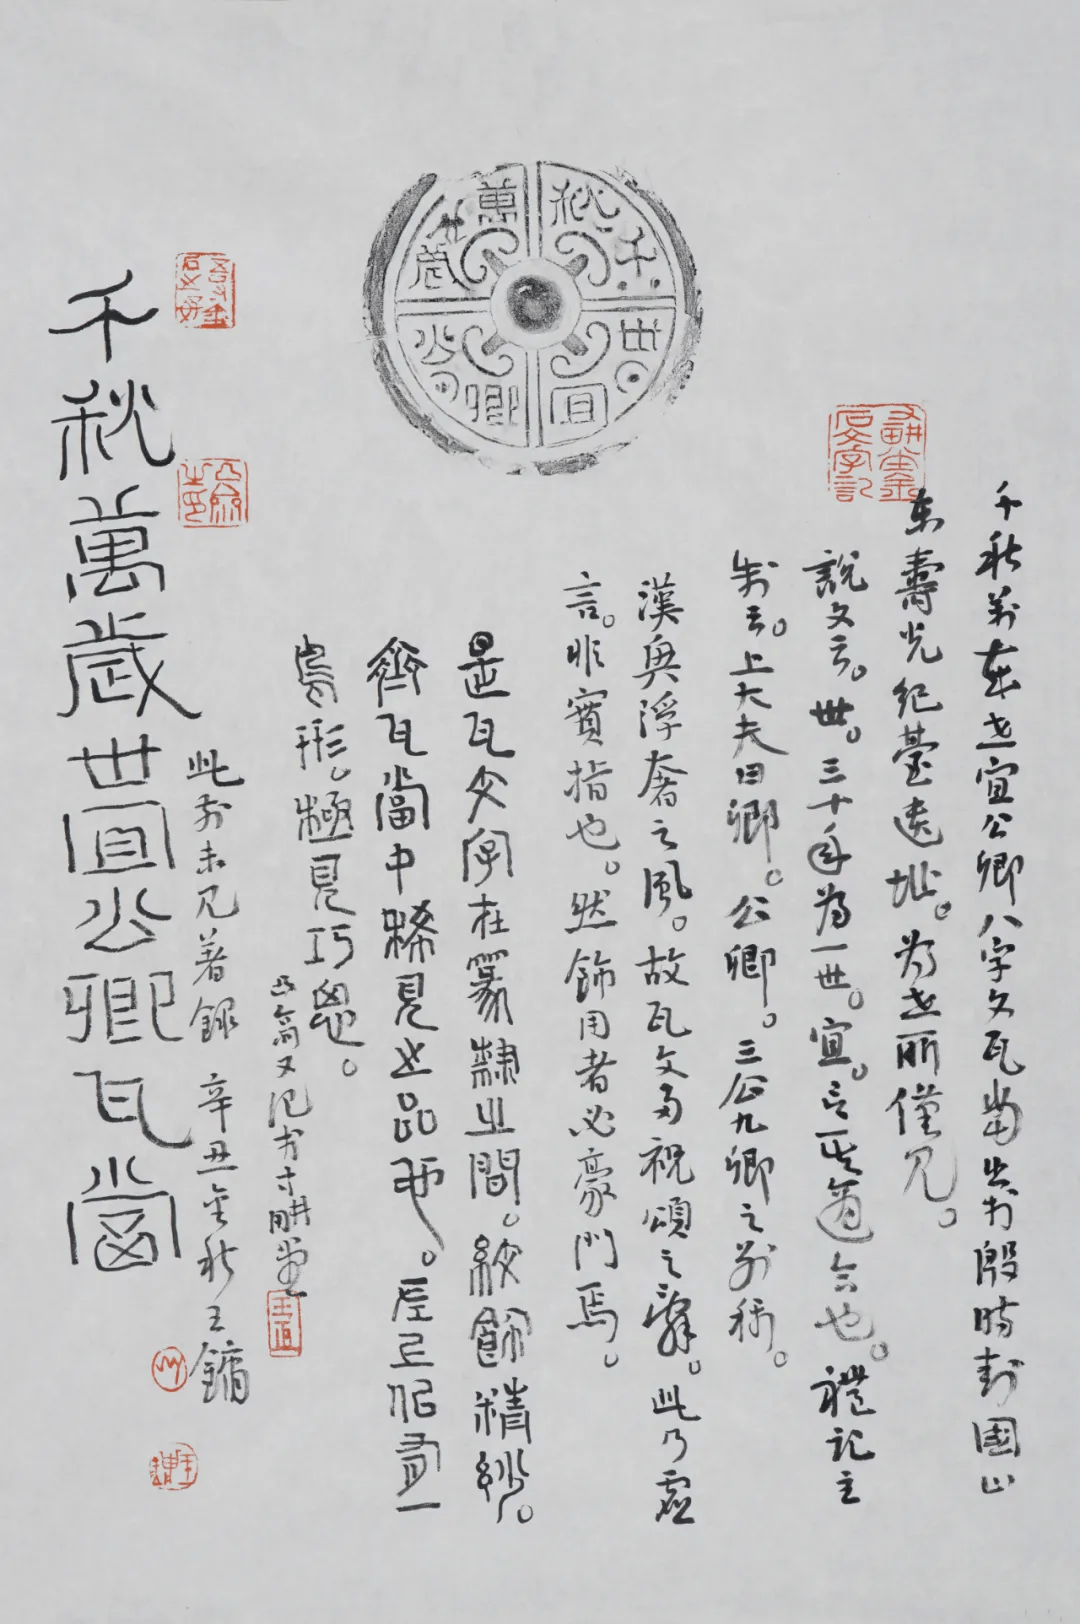 千秋萬歲世宜公卿
千秋萬歲世宜公卿八字文瓦當出於殷時封國山
東壽光紀臺遺址。為世所僅見。
說文云。世。三十年為一世。宜。言其適合也。禮記王
制云。上大夫曰卿。公卿。三公九卿之別稱。
漢興浮奢之風。故瓦文多祝頌之辭。此乃虛
言。非實指也。然飾用者必豪門焉。
是瓦文字在篆隸之間。紋飾精妙。
齊瓦當中稀見之品也。左上似有一
鳥形。極見巧思。
又記於寸耕堂
千秋萬歲世宜公卿瓦當
此前未見著錄 辛丑金秋王鏞
耕堂金石文字記